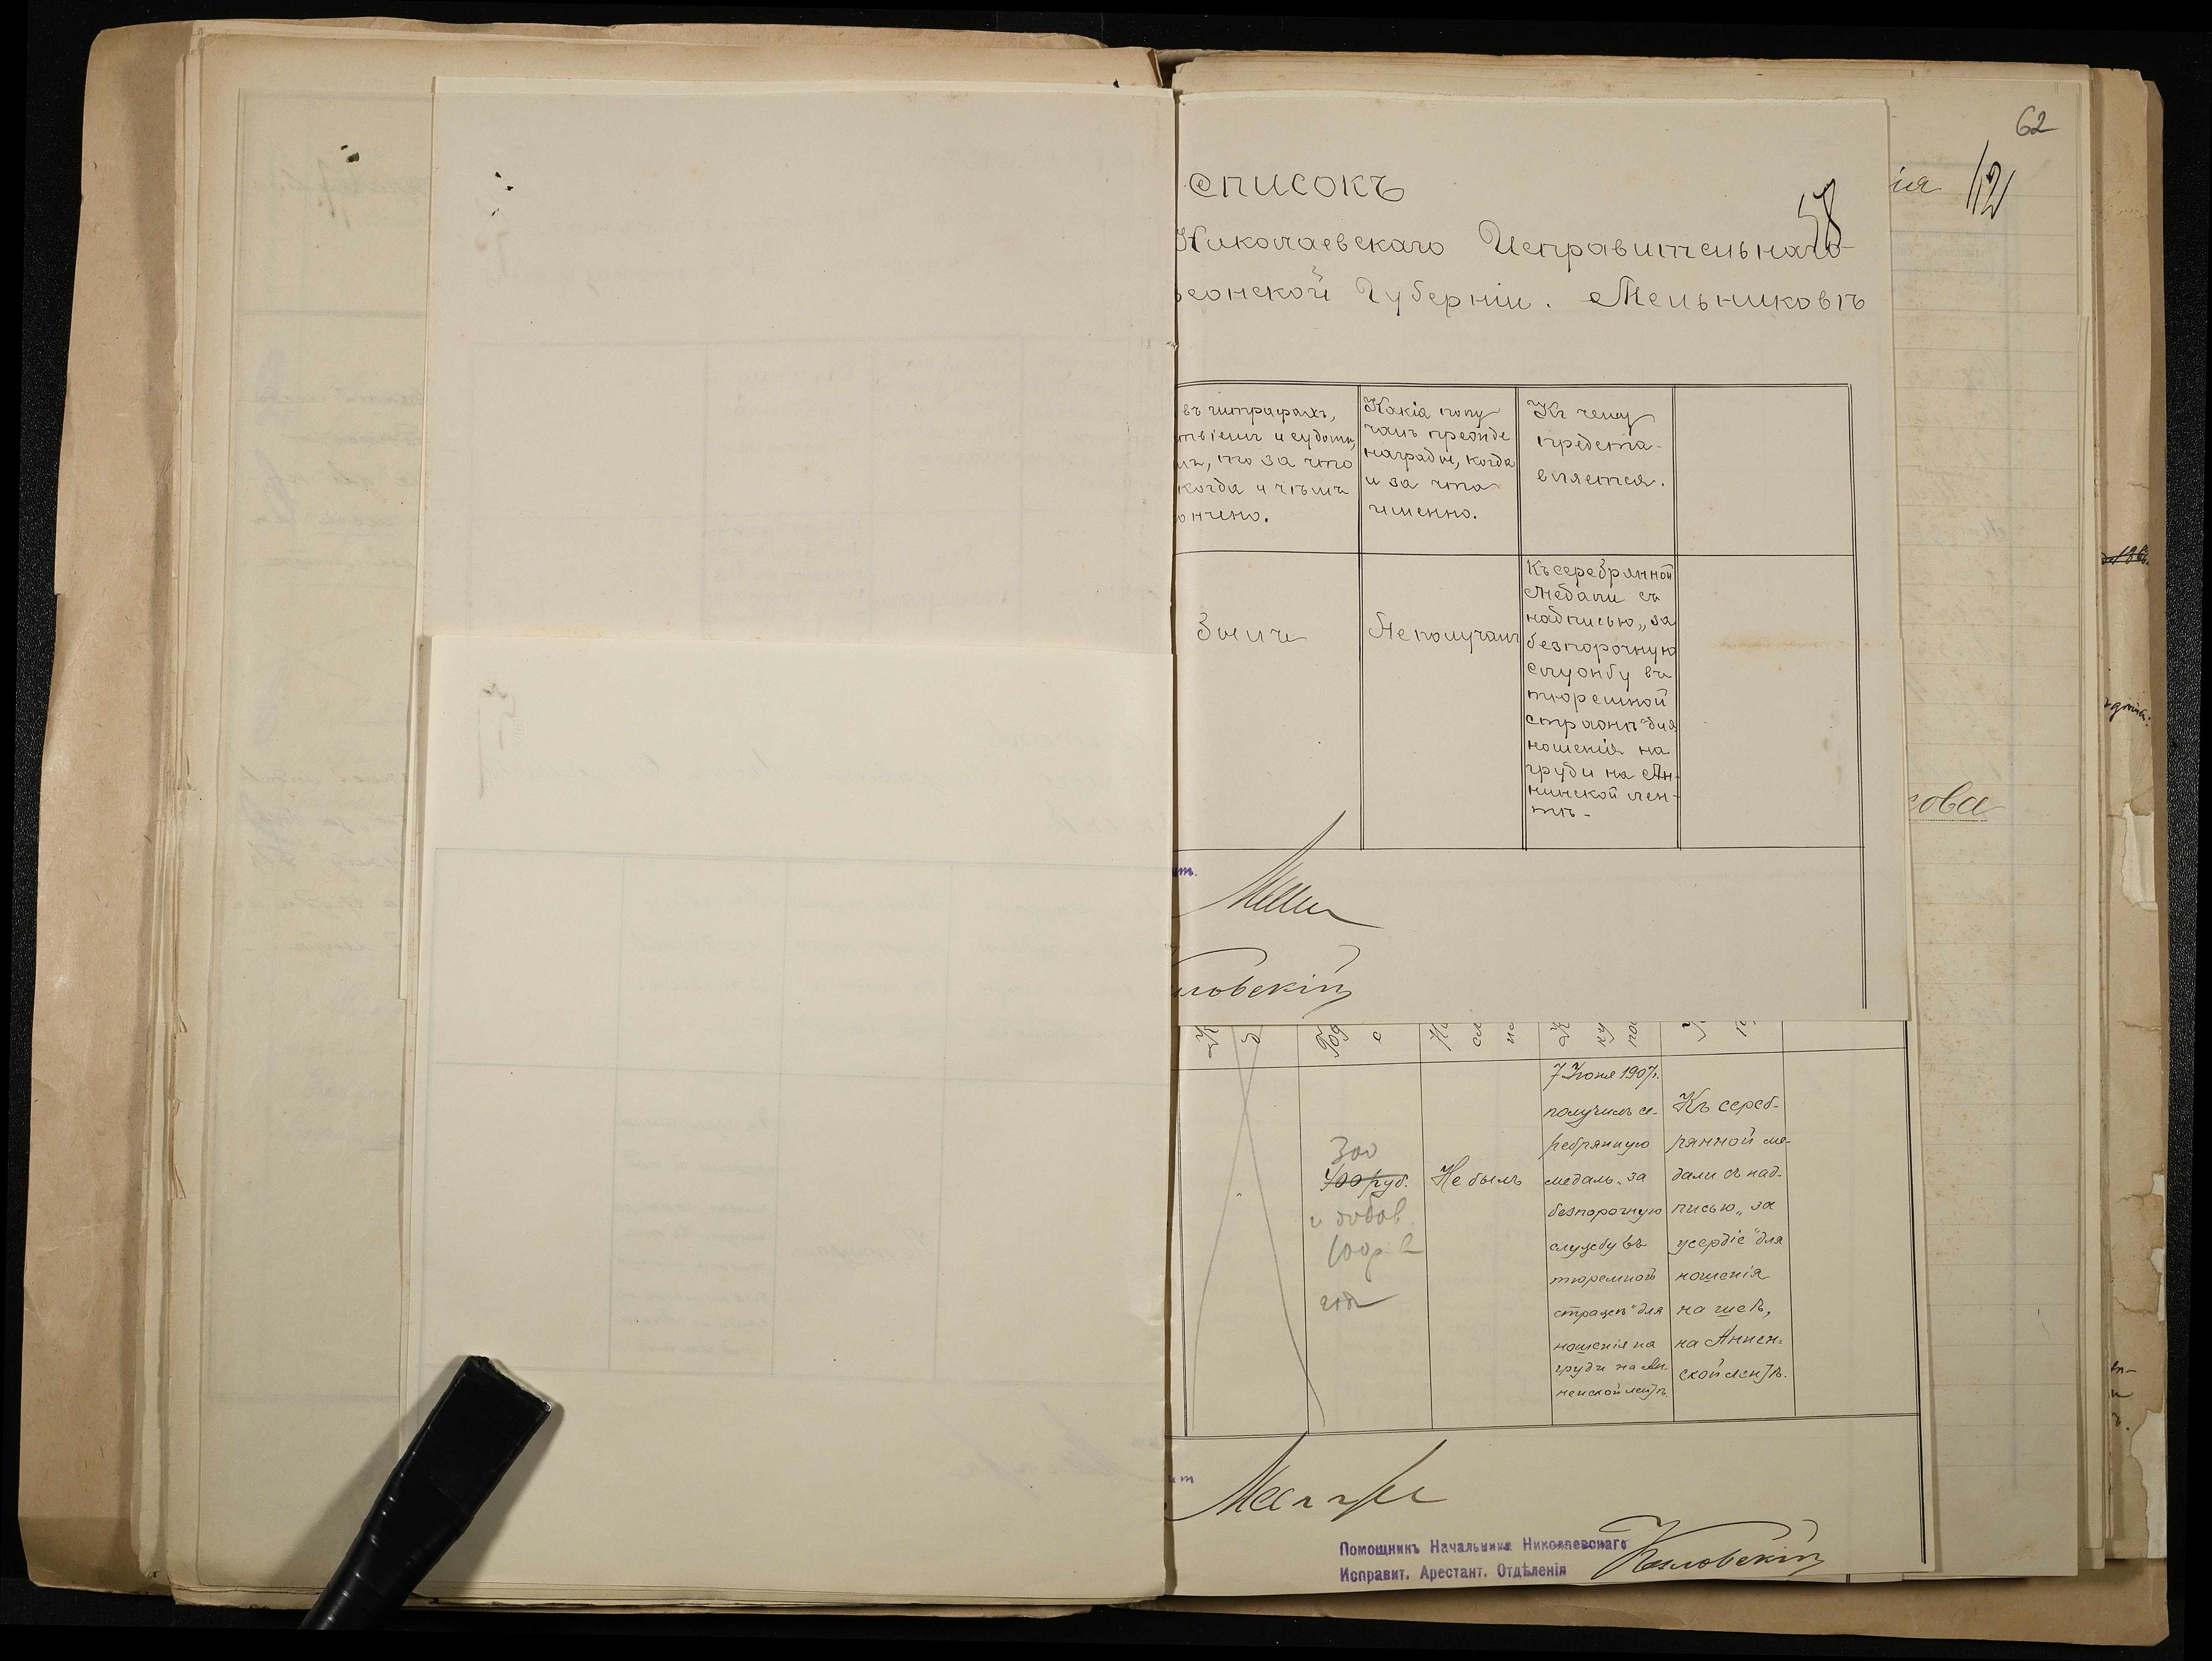 62
112
58
списокъ
Николаевскаго Исправительнаго
сонской Губерніи. Мельниковъ
въ штрафахъ,
ствіемъ и судомъ,
то за что
когда и чѣмъ
ончено.
Какія полу
чалъ прежде
награды, когда
и за что
именно.
Къ чему
предста-
вляется.
Не получалъ
Къ серебрянной
Медали съ
надписью „за
безпорочную
службу въ
тюремной
стражѣ" для
ношенія на
груди на Ан-
нинской лен-
тѣ.
ловскій
сова
300
400 руб.
и добав.
100 р. в
годъ
Не былъ
7 Іюня 1907г.
получилъ се-
ребрянную
медаль „за
безпорочную
службу въ
тюремной
стражѣ" для
ношенія на
груди на Ан-
ненской лентѣ.
Къ сереб-
рянной ме-
дали съ над-
писью „за
усердіе" для
ношенія
на шеѣ,
на Аннен-
ской лентѣ.
Помощникъ Начальника Николаевскаго
Исправит. Арестант. Отдѣленія
Козловскій